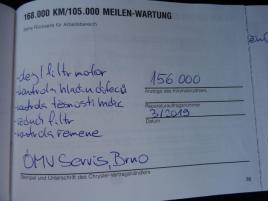 168.000 KM/105.000 MEILEN-WARTUNG
Siehe Rückseite für Arbeitsbereich
-olej/filtr motor
-kontrola hladin
-kontrola těsnosti
156.000
Anzeige des Kilometerzählers
-vzduch filtr
Reparaturauftragsnummer
3/2019
-kontrola řemene
Datum
ÖMV Servis, Brno
Stempel und Unterschrift des Chrysler-Vertragshändlers